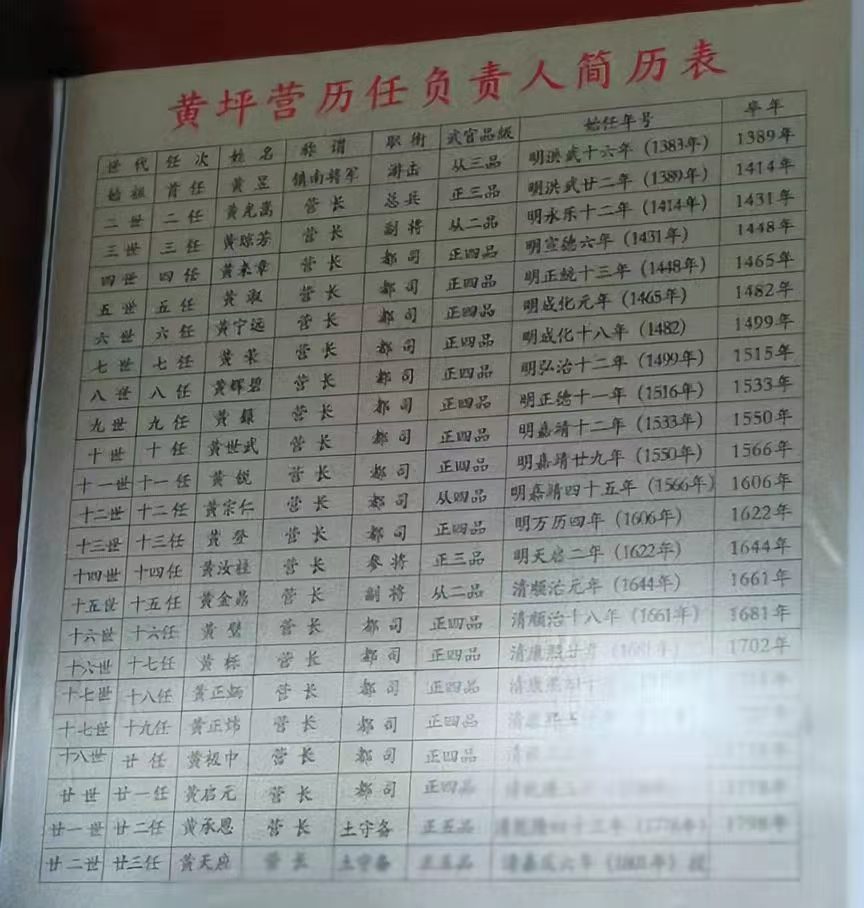 黄坪营历任负责人简历表
世代 任次 姓名 称谓 职衔 武官品级 始任年号 卒年
始祖 首任 黄昱 镇南将军 游击 从三品 明洪武十六年（1383年） 1389年
二世 二任 黄光嵩 营长 总兵 正三品 明洪武廿二年（1389年） 1414年
三世 三任 黄琼芳 营长 副将 从二品 明永乐十二年（1414年） 1431年
四世 四任 黄来章 营长 都司 正四品 明宣德六年（1431年） 1448年
五世 五任 黄淑 营长 都司 正四品 明正统十三年（1448年） 1465年
六世 六任 黄宁远 营长 都司 正四品 明成化元年（1465年） 1482年
七世 七任 黄荣 营长 都司 正四品 明成化十八年（1482） 1499年
八世 八任 黄辉碧 营长 都司 正四品 明弘治十二年（1499年） 1515年
九世 九任 黄 营长 都司 正四品 明正德十一年（1516年） 1533年
十世 十任 黄世武 营长 都司 正四品 明嘉靖十二年（1533年） 1550年
十一世 十一任 黄锐 营长 都司 正四品 明嘉靖廿九年（1550年） 1566年
十二世 十二任 黄宗仁 营长 都司 从四品 明嘉靖四十五年（1566年） 1606年
十三世 十三任 黄登 营长 都司 正四品 明万历四年（1606年） 1622年
十四世 十四任 黄汝桂 营长 参将 正三品 明天启二年（1622年） 1644年
十五世 十五任 黄金鼎 营长 副将 从二品 清顺治元年（1644年） 1661年
十六世 十六任 黄璧 营长 都司 正四品 清顺治十八年（1661年） 1681年
十六世 十七任 黄栎 营长 都司 正四品 清康熙廿年（1681年） 1702年
十七世 十八任 黄正炳 营长 都司 正四品 清康熙四十
十七世 十九任 黄正炜 营长 都司 正四品 清康熙
十八世 廿任 黄极中 营长 都司 正四品
廿世 廿一任 黄启元 营长 都司 正四品
廿一世 廿二任 黄承恩 营长 土守备 正五品 清乾隆四十三年（1778年） 1798年
廿二世 廿三任 黄天 营长 土守备 正五品 清嘉庆六年（1801年）